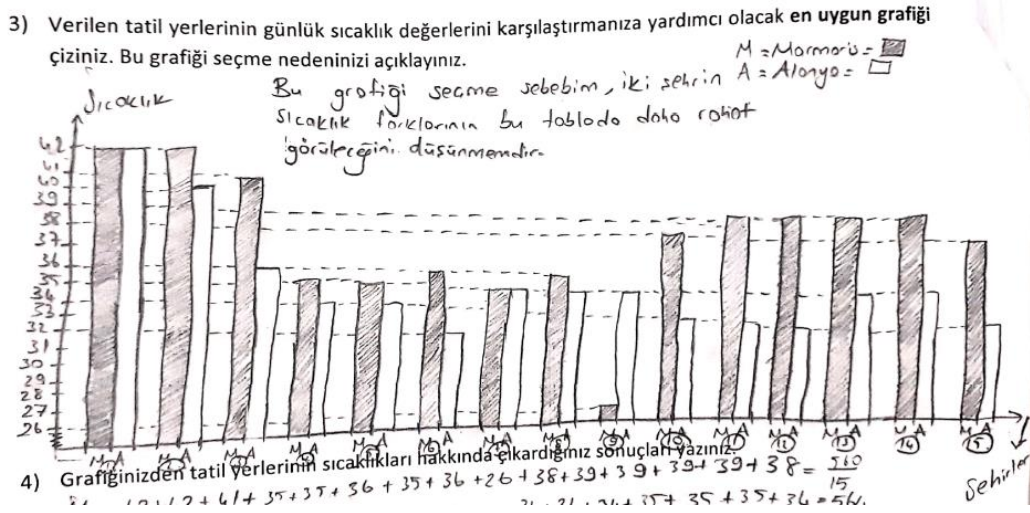 3) Verilen tatil yerlerinin günlük sıcaklık değerlerini karşılaştırmanıza yardımcı olacak en uygun grafiği
çiziniz. Bu grafiği seçme nedeninizi açıklayınız.
M = Marmaris =
A = Alanya =
Bu grafiği seçme sebebim, iki şehrin
sıcaklık farklarının bu tabloda daha rahat
görüleceğini düşünmemdir.
Sıcaklık
42
41
40
39
38
37
36
35
34
33
32
31
30
29
28
27
26
M A M A M A M A M A M A M A M A M A M A M A M A M A M A M A
5 6 9 10 11 12 13 14 15
Şehirler
4) Grafiğinizden tatil yerlerinin sıcaklıkları hakkında çıkardığınız sonuçları yazınız.
+ 41 + 35 + 35 + 36 + 35 + 36 + 26 + 38 + 39 + 39 + 39 + 39 + 38 = 560
15
35 + 35 + 35 + 34 =